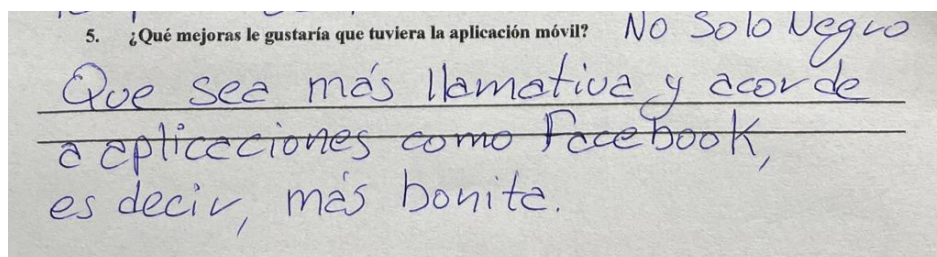 5. ¿Qué mejoras le gustaría que tuviera la aplicación móvil? No Solo Negro
Que sea más llamativa y acorde
a aplicaciones como Facebook,
es decir, más bonita.